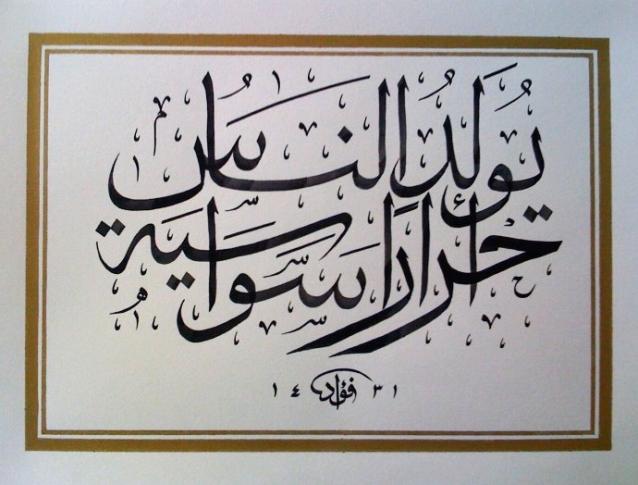 يُولَدُ النَّاسُ
أحرارًا سَوَاسِيَة
١٤ فؤاد ٣١